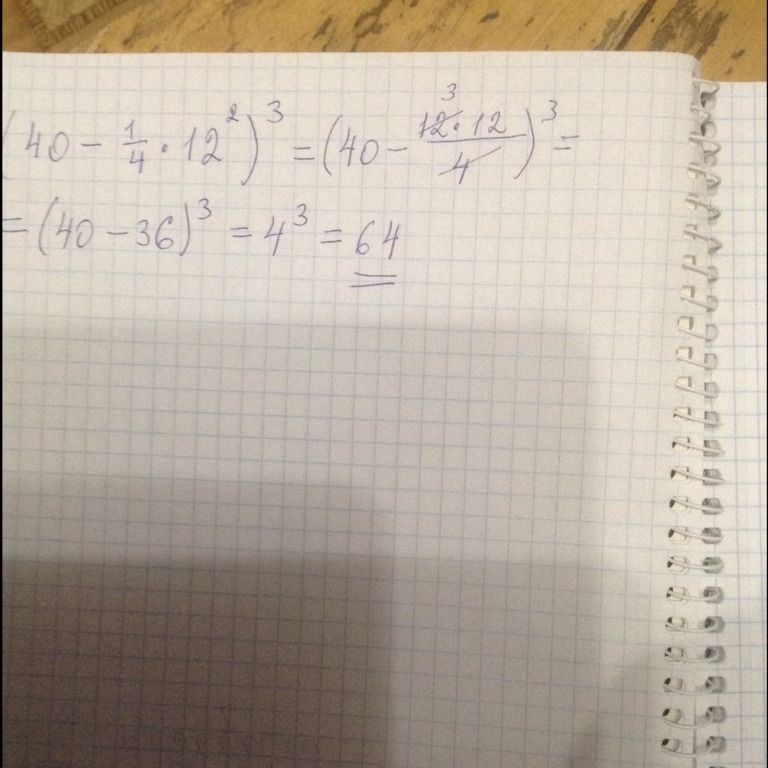 (40 - 1/4 · 12²)³ = (40 - 12³ · 12 / 4)³ =
= (40 - 36)³ = 4³ = 64